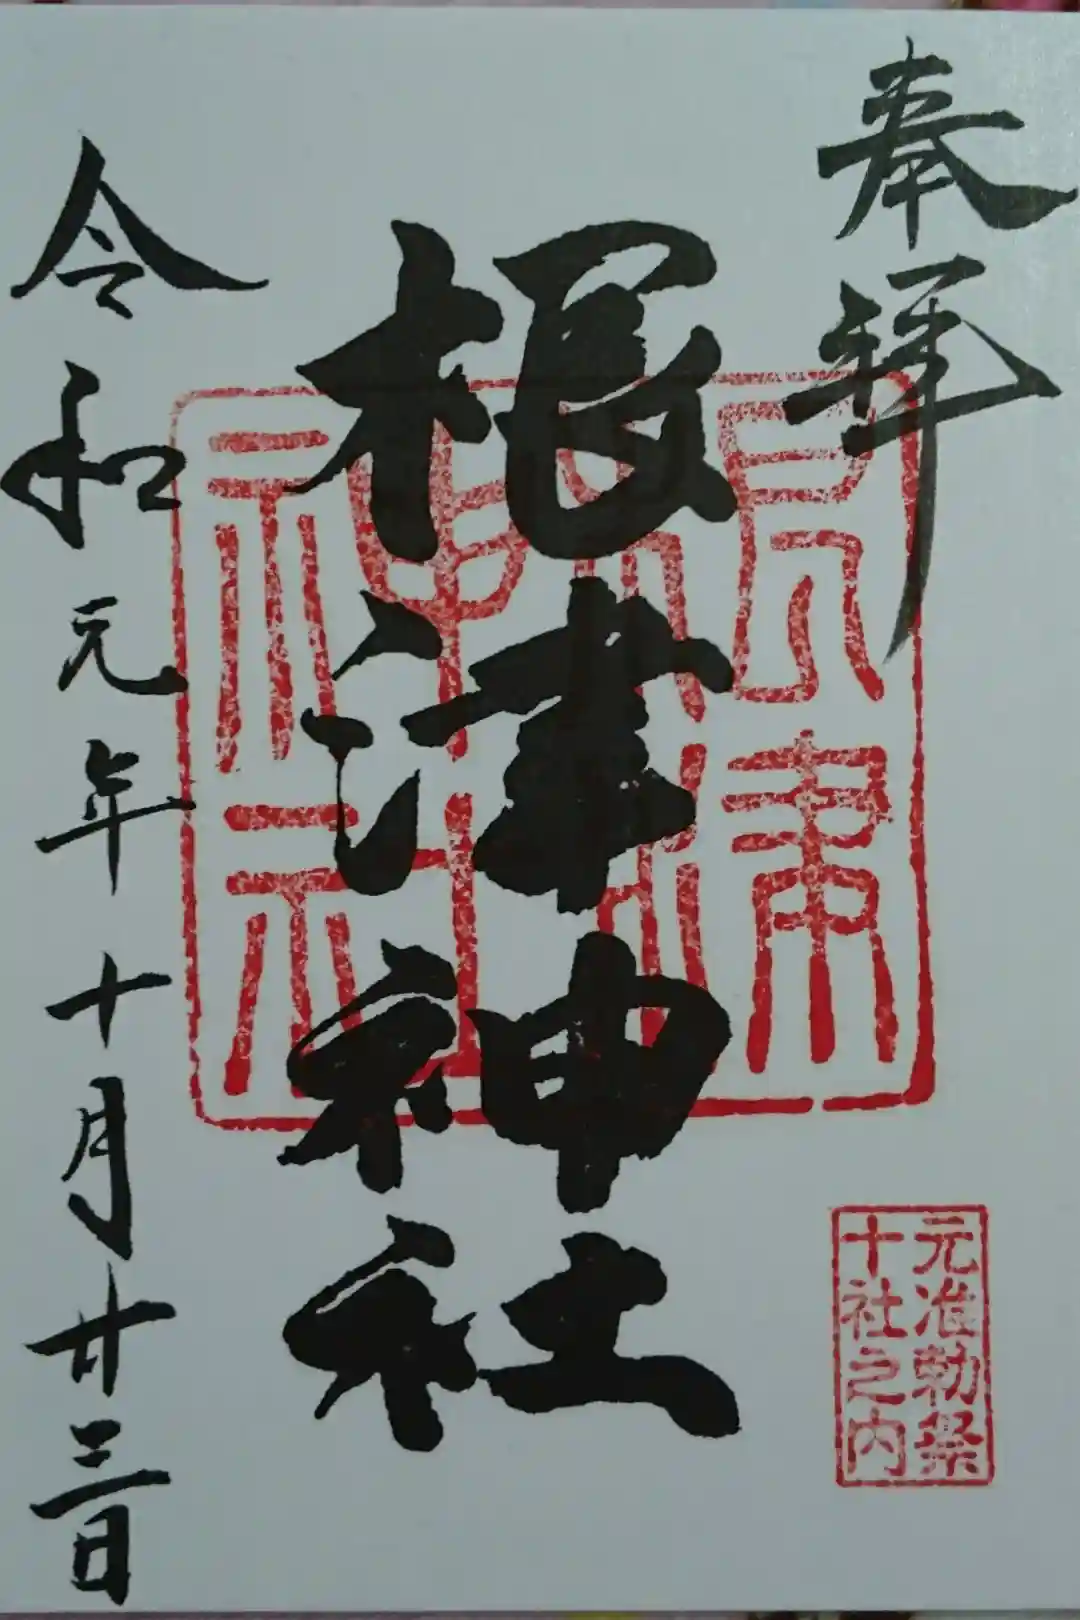 奉拝
根津神社
根津
神社
元准勅祭
十社之内
令和元年十月廿三日